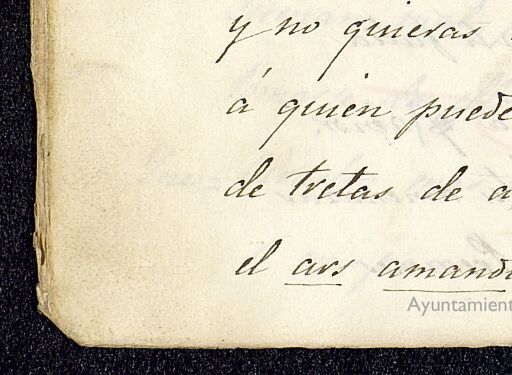 y no quieras
á quien puede
de tretas de a
el ars amandi
Ayuntamien